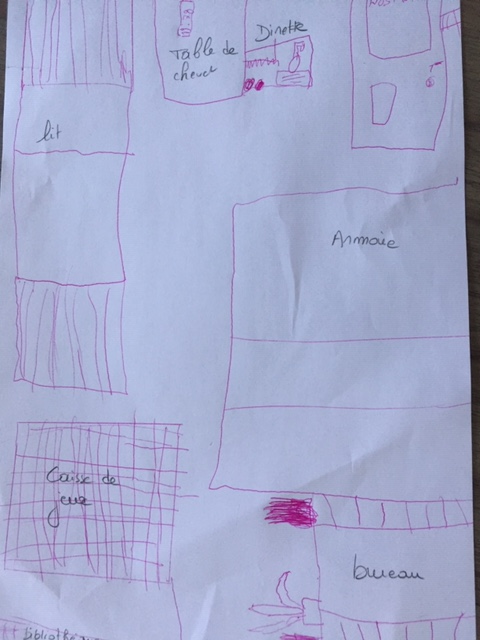 Table de
chevet
Dinette
lit
Armoire
Caisse de
jeux
bureau